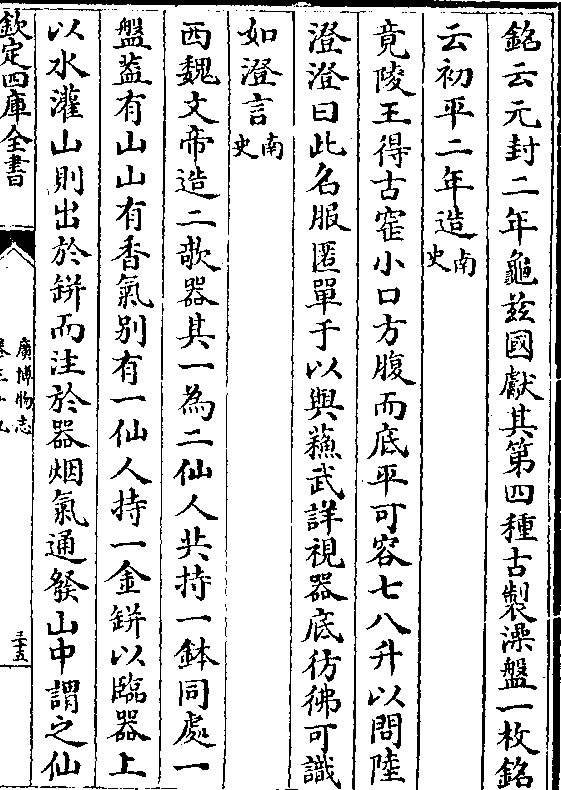 銘云元封二年龜兹國獻其第四種古製澡盤一枚銘
云初平二年造南史
竟陵王得古窑小口方腹而底平可容七八升以問陸
澄澄曰此名服匿單于以與蘓武詳視器底彷彿可識
如澄言南史
西魏文帝造二欹器其一為二仙人共持一鉢同處一
盤葢有山山有香氣别有一仙人持一金缾以臨器上
以水灌山則出於缾而注於器烟氣通發山中謂之仙
欽定四庫全書
廣博物志
卷三十九
三十五